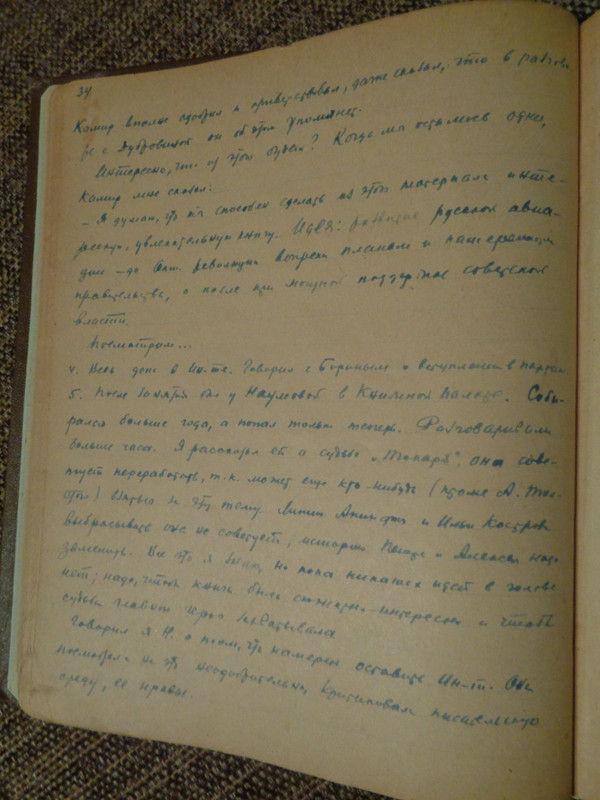 34
Камир вполне одобрил и приветствовал, даже сказал, что в разгово-
ре с Дубровиной он об этом упомянет.
Интересно, что из этого будет? Когда мы остались одни,
Камир мне сказал:
– Я думаю, что вы способны сделать из этого материала инте-
ресную, увлекательную книгу. Идея: развитие русской авиа-
ции – до Окт. революции вопреки планам и
правительства, а после при мощной поддержке советской
власти.
Посмотрим...
4. Весь день в Ин-те. Говорил с о вступлении в партию.
5. После занятий был у Наумовой в Книжной Палате. Соби-
рался больше года, а попал только теперь. Разговаривали
больше часа. Я рассказал ей о судьбе „ она сове-
тует переработать, т.к. может еще кто-нибудь (кроме А. Тол-
стого) взяться за эту тему. Линии и Ильи Кострова
выбрасывать она не советует, историю и надо
заменить. Все это я знаю, но пока никаких идей в голове
нет; надо, чтобы книга была сюжетно-интересна и чтобы
судьба главного героя
Говорил я Н. о том, что намерен оставить Ин-т. Она
посмотрела на это неодобрительно, критиковала писательскую
среду, ее нравы.